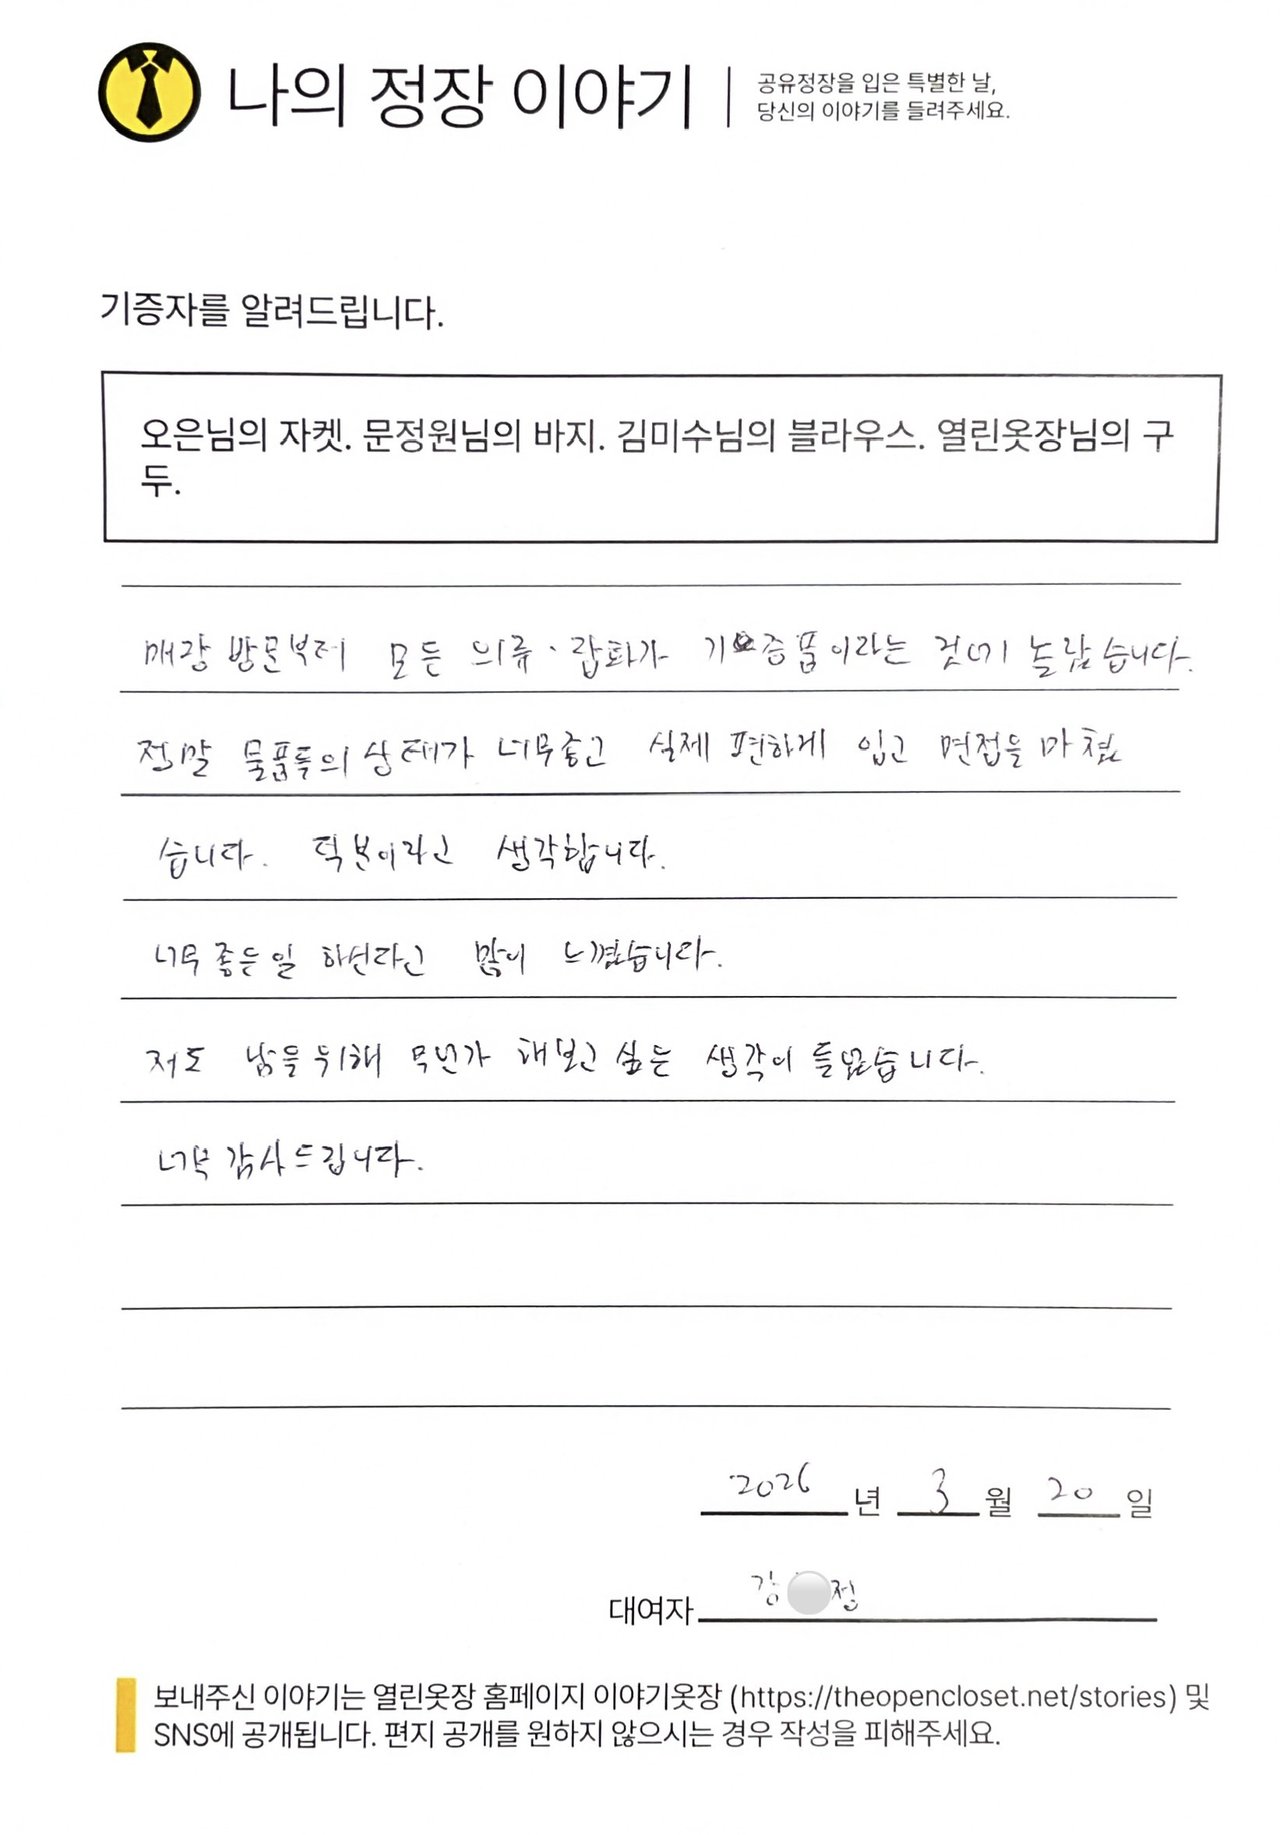 나의 정장 이야기
공유정장을 입은 특별한 날,
당신의 이야기를 들려주세요.
기증자를 알려드립니다.
오은님의 자켓. 문정원님의 바지. 김미수님의 블라우스. 열린옷장님의 구
두.
매장 방문부터 모든 의류· 잡화가 기증품이라는 것에 놀랐습니다.
정말 물품들의 상태가 너무좋고 실제 편하게 입고 면접을 마쳤
습니다. 덕분이라고 생각합니다.
너무 좋은일 하신다고 많이 느꼈습니다.
저도 남을 위해 무언가 해보고 싶은 생각이 들었습니다.
너무 감사드립니다.
2026 년 3 월 20 일
대여자 강 정
보내주신 이야기는 열린옷장 홈페이지 이야기옷장 (https://theopencloset.net/stories) 및
SNS에 공개됩니다. 편지 공개를 원하지 않으시는 경우 작성을 피해주세요.